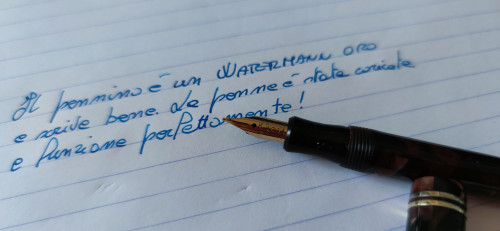 Il pennino è un WATERMANN ORO
e scrive bene. La penna è stata
e funziona perfettamente!